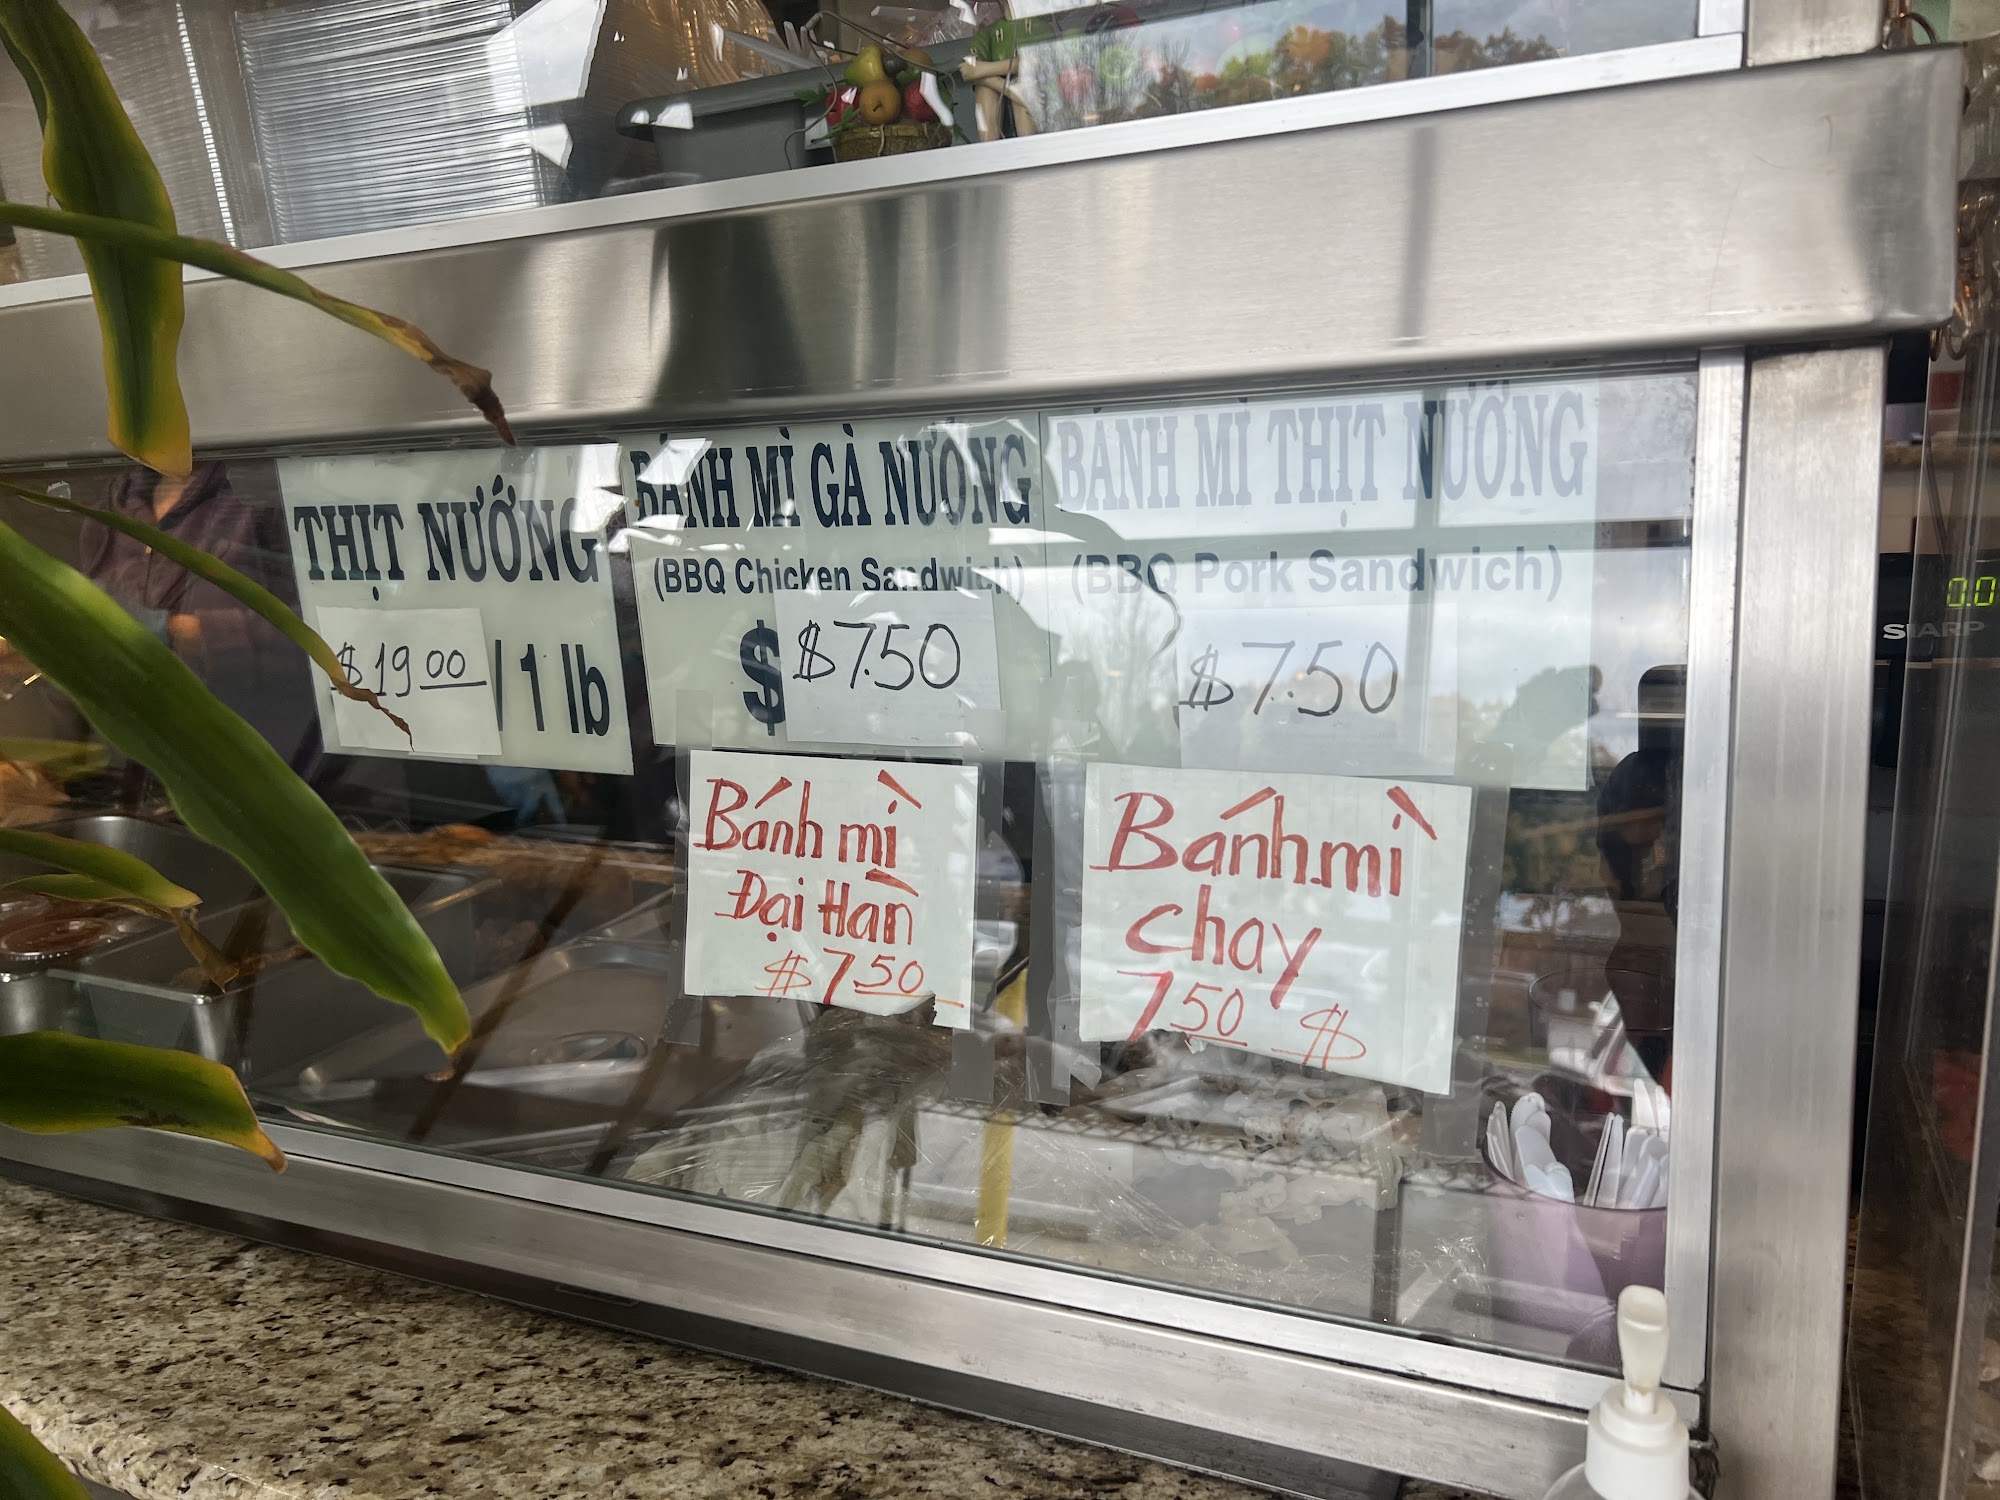 THỊT NƯỚNG
$19.00 / 1 lb
BÁNH MÌ GÀ NƯỚNG
(BBQ Chicken Sandwich)
$ $7.50
BÁNH MÌ THỊT NƯỚNG
(BBQ Pork Sandwich)
$7.50
Bánh mì
Đại Hàn
$7.50
Bánh mì
chay
7.50 $
0.0
SHARP